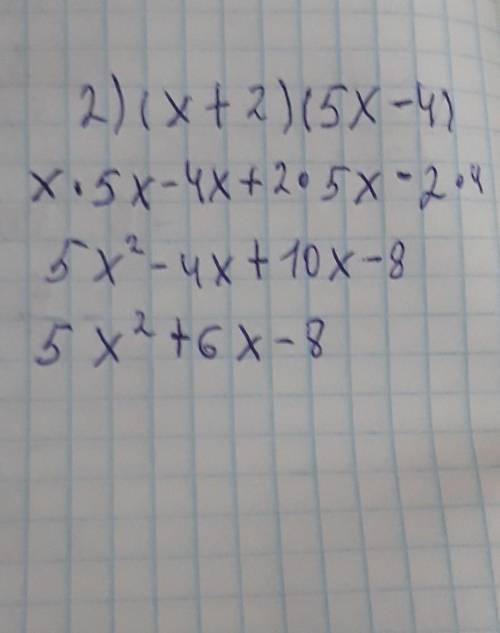 2) (x + 2)(5x - 4)
x · 5x - 4x + 2 · 5x - 2 · 4
5x² - 4x + 10x - 8
5x² + 6x - 8